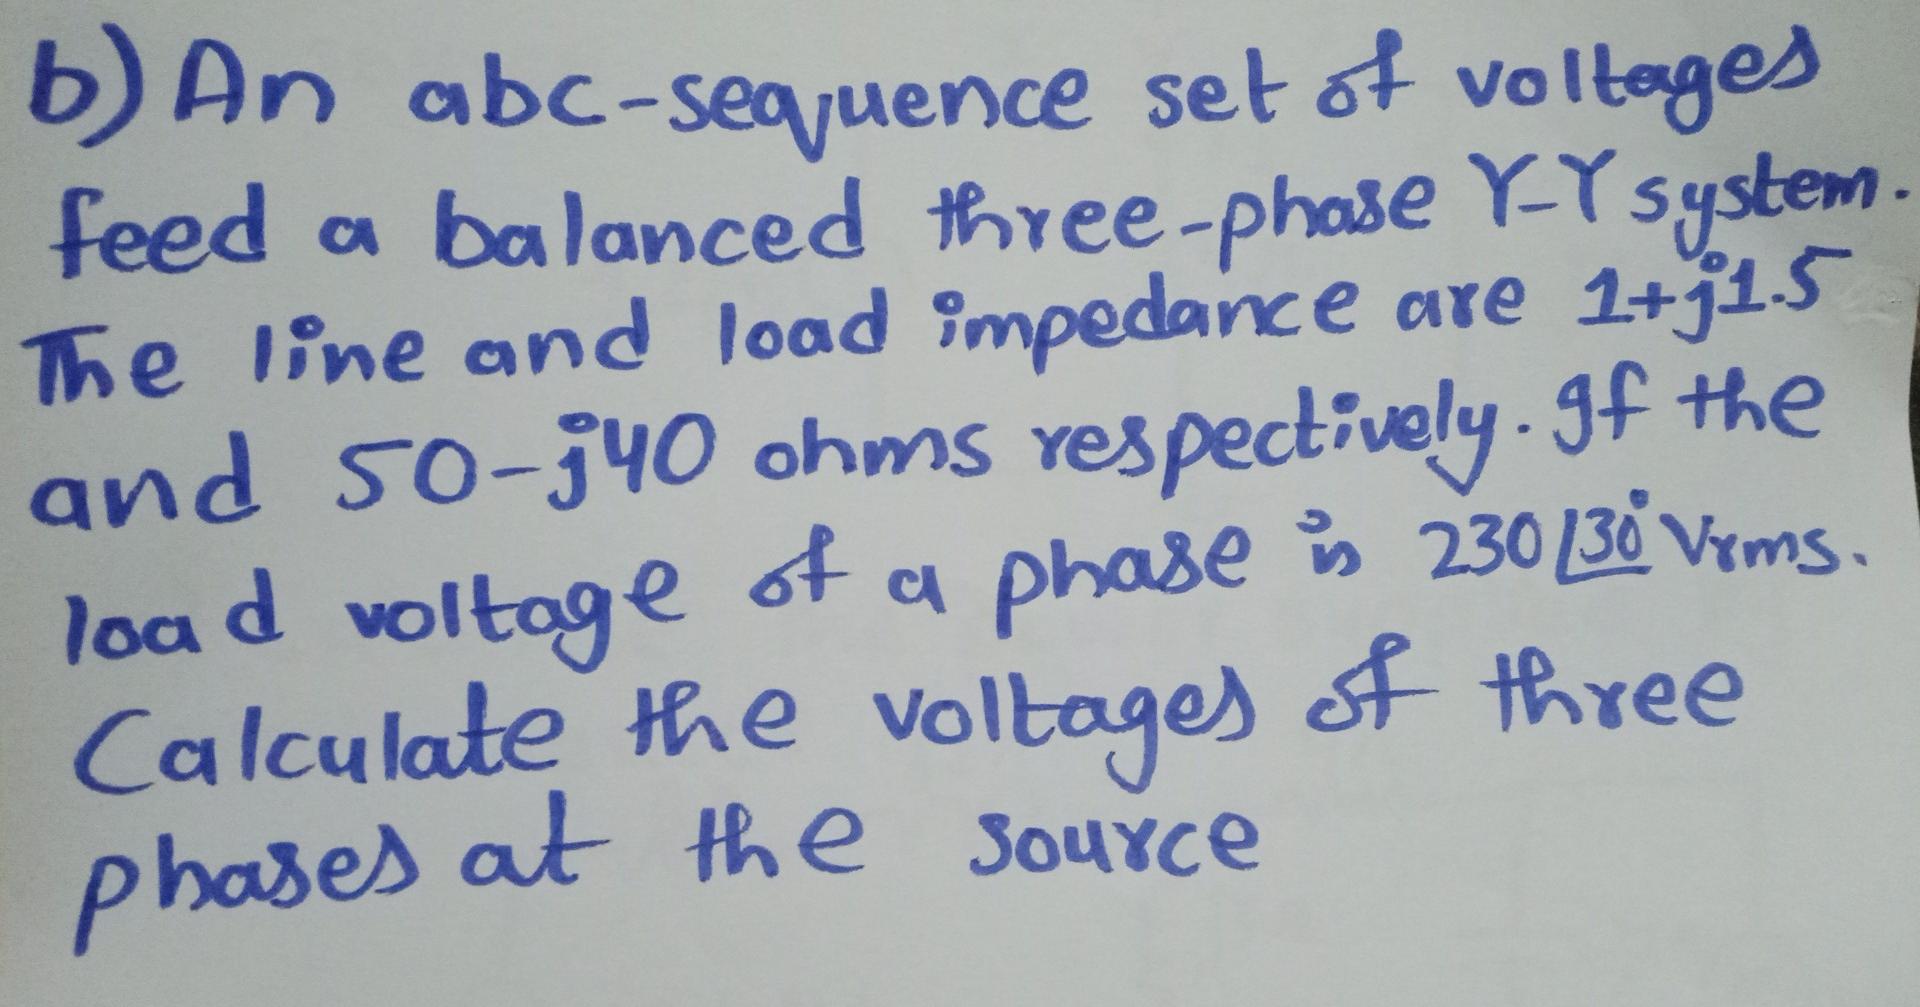 b) An abc-sequence set of voltages
feed a balanced three-phase Y-Y system.
The line and load impedance are 1+j1.5
and 50-j40 ohms respectively. If the
load voltage of a phase is 230∠30° Vrms.
Calculate the voltages of three
phases at the source